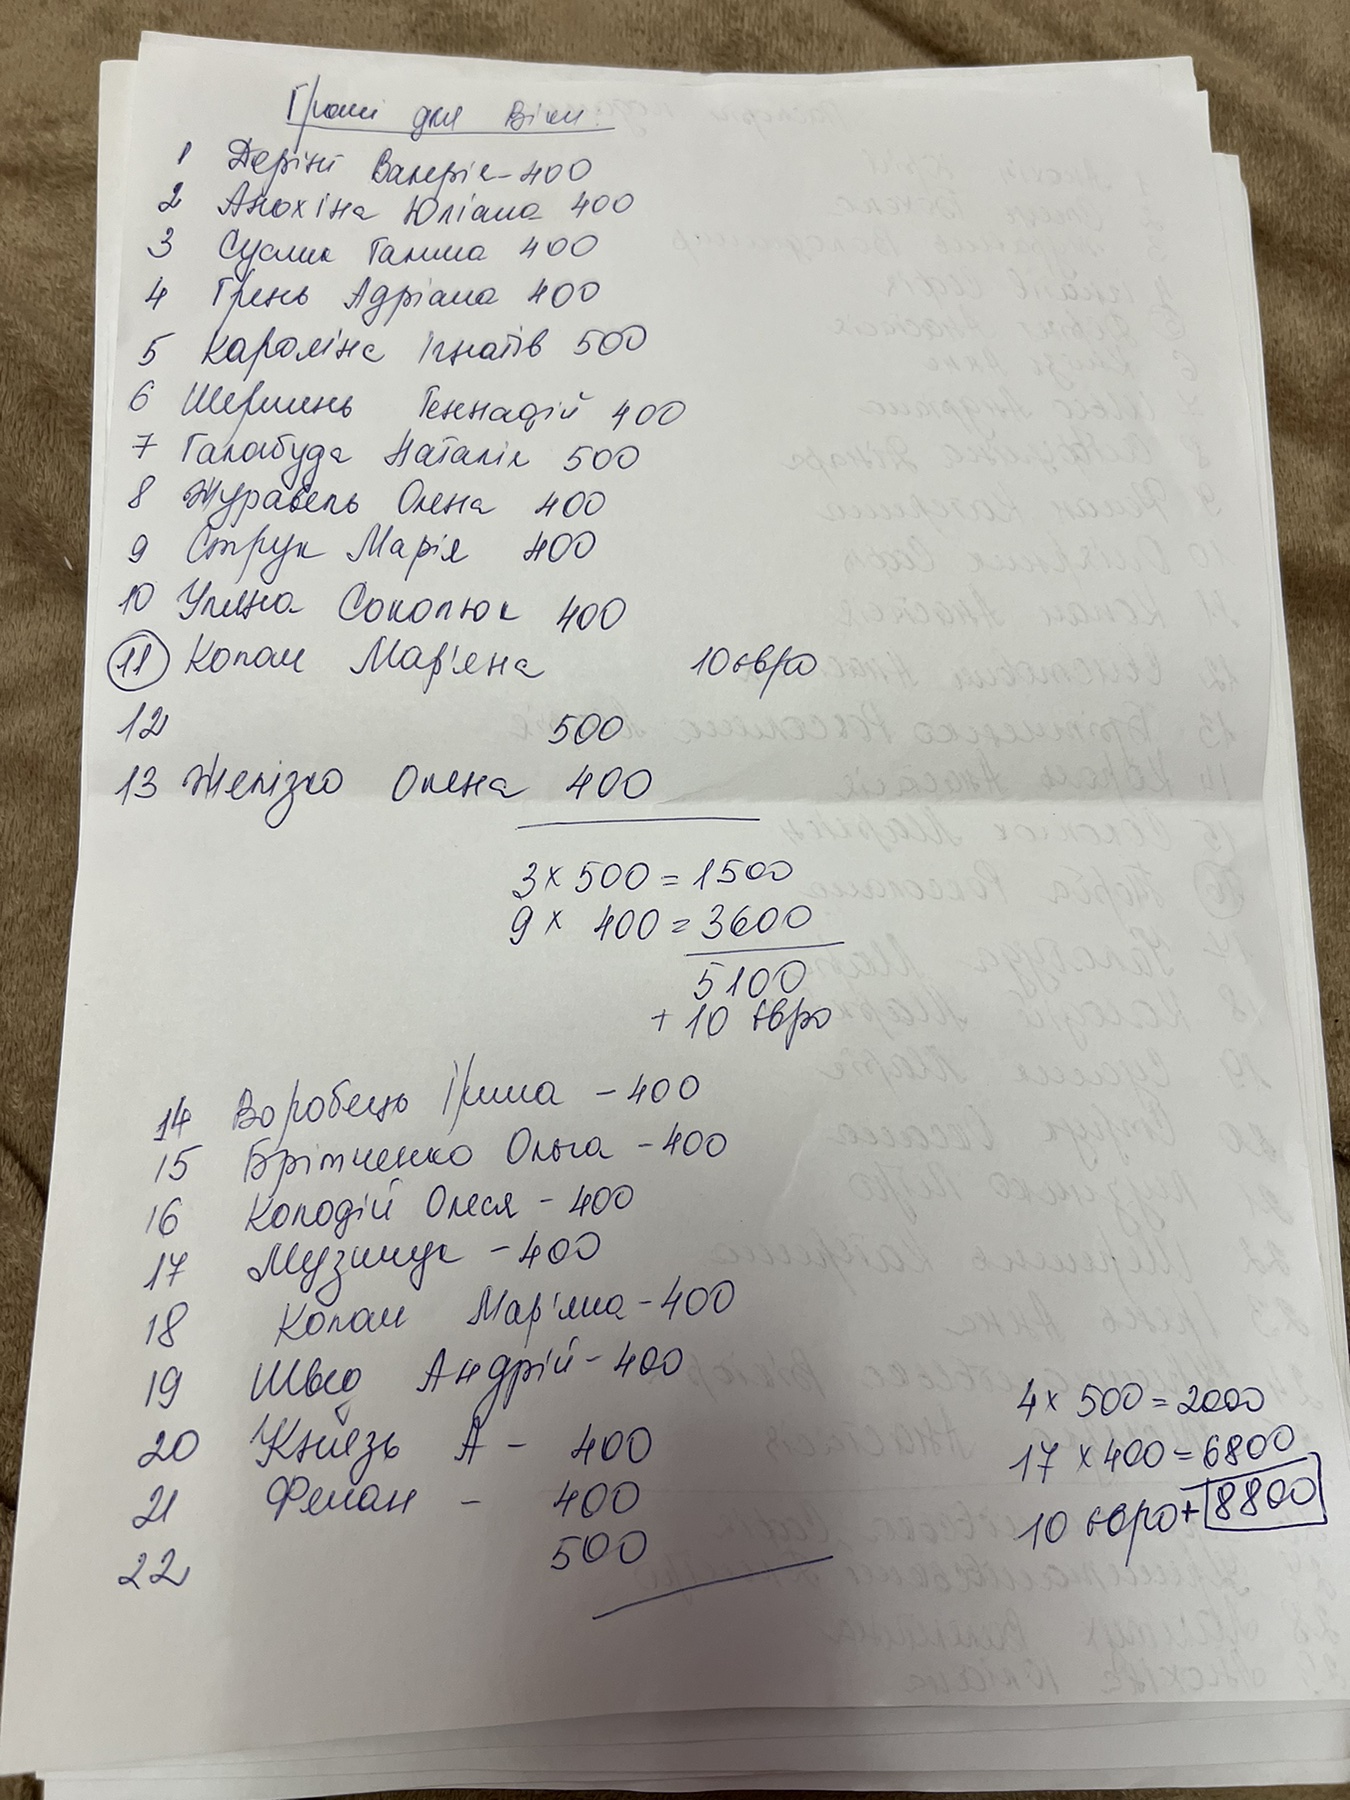 Гроші для Віки
1 Деріш Валерія - 400
2 Анохіна Юліана 400
3 Суслик Галина 400
4 Грень Адріана 400
5 Кароліна Ігнатів 500
6 Шершень Геннадій 400
7 Галабуда Наталія 500
8 Журавель Олена 400
9 Струк Марія 400
10 Уляна Соколюк 400
11 Копач Мар'яна 10 євро
12 500
13 Желізко Олена 400
3 x 500 = 1500
9 x 400 = 3600
5100
+ 10 євро
14 Воробець Ірина - 400
15 Брітченко Ольга - 400
16 Колодій Олеся - 400
17 Музичук - 400
18 Копач Мар'яна - 400
19 Швед Андрій - 400
20 Князь А - 400
21 Феман - 400
22 500
4 x 500 = 2000
17 x 400 = 6800
10 євро + 8800